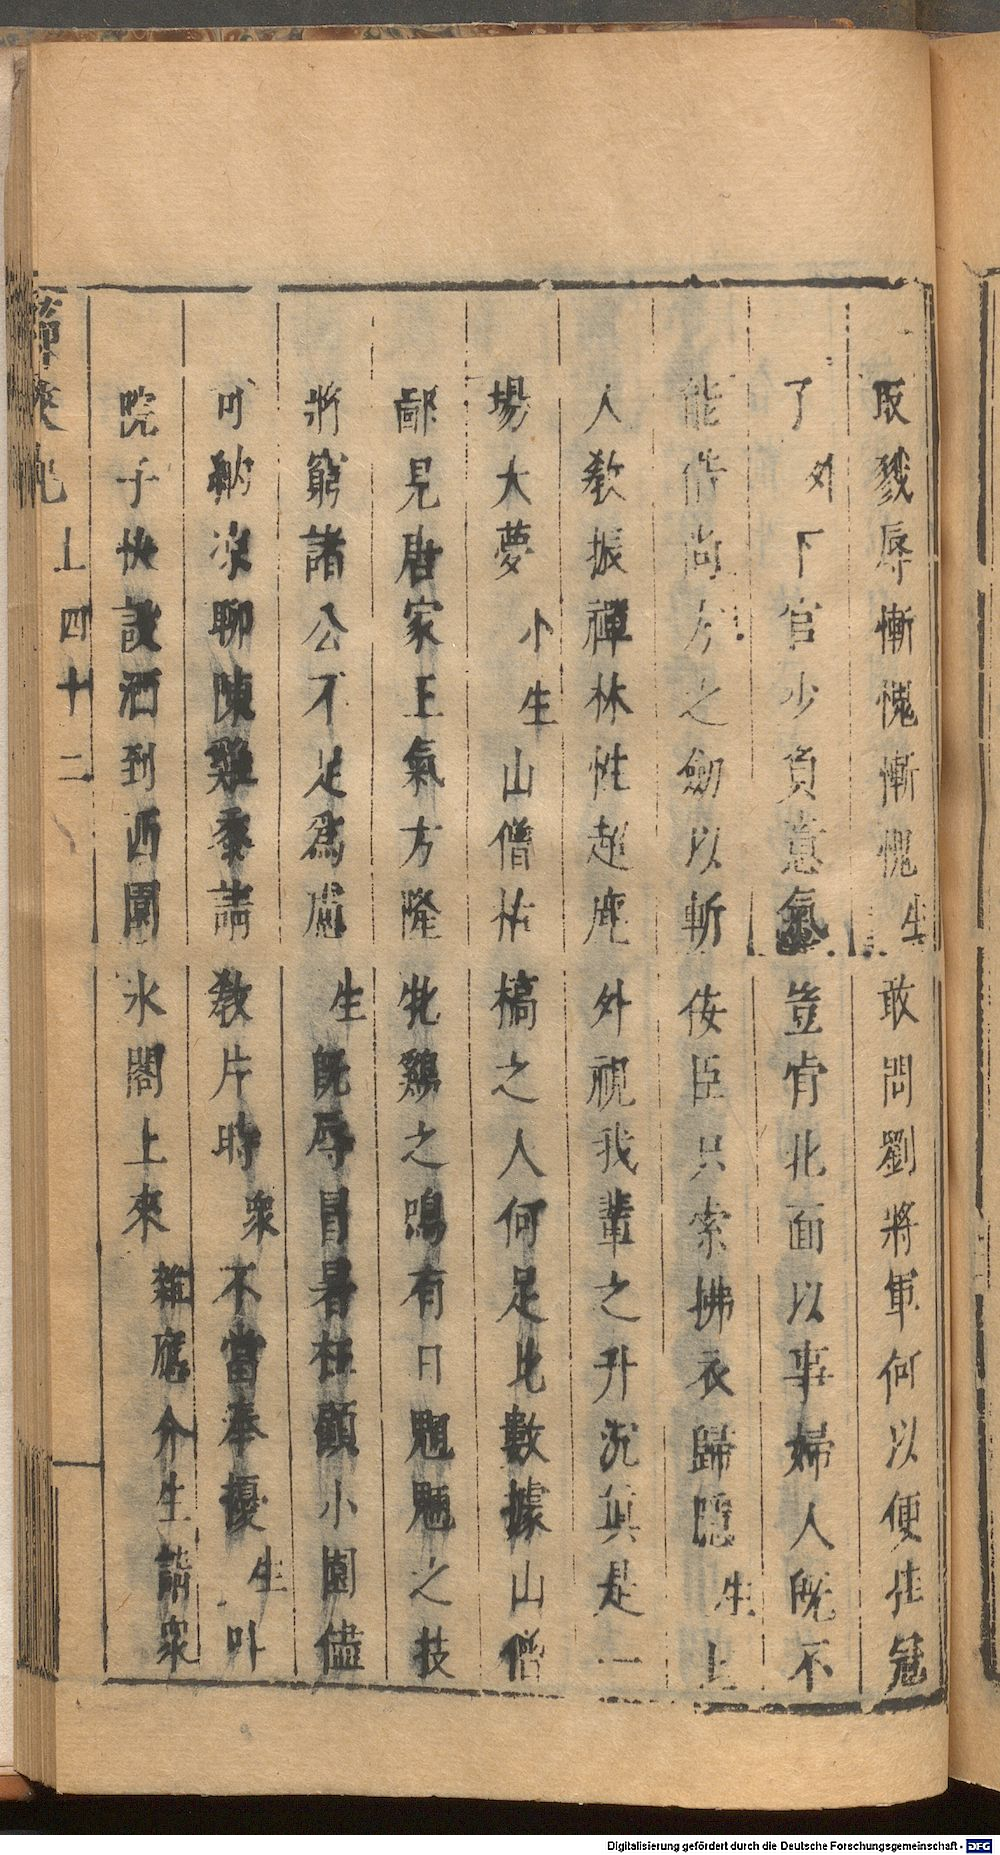 取戮辱慚愧慚愧生敢問劉將軍何以便掛冠
了外下官少負意氣豈肯北面以事婦人旣不
能借尚方之劒以斬侫臣只索拂衣歸隱生上
人敎振禪林性超塵外視我輩之升沉眞是一
場大夢小生山僧枯槁之人何足比數據山僧
鄙見唐家王氣方隆牝鷄之鳴有日魍魎之技
將窮諸公不足爲慮生旣辱冒暑枉顧小園儘
可納凉聊陳雞黍請敎片時衆不當奉擾生叫
院子快設酒到西園水閣上來雜應介生請衆
上四十二
Digitalisierung gefördert durch die Deutsche Forschungsgemeinschaft - DFG